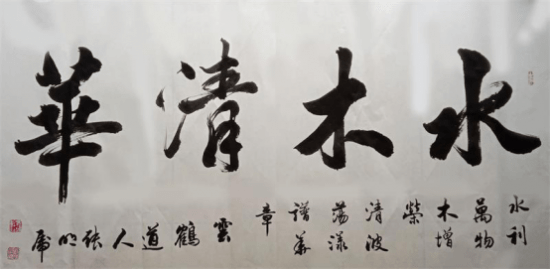 水木清華
水利
萬物
木增
榮
清波
蕩漾
譜華
章
雲
鶴
道
人
張